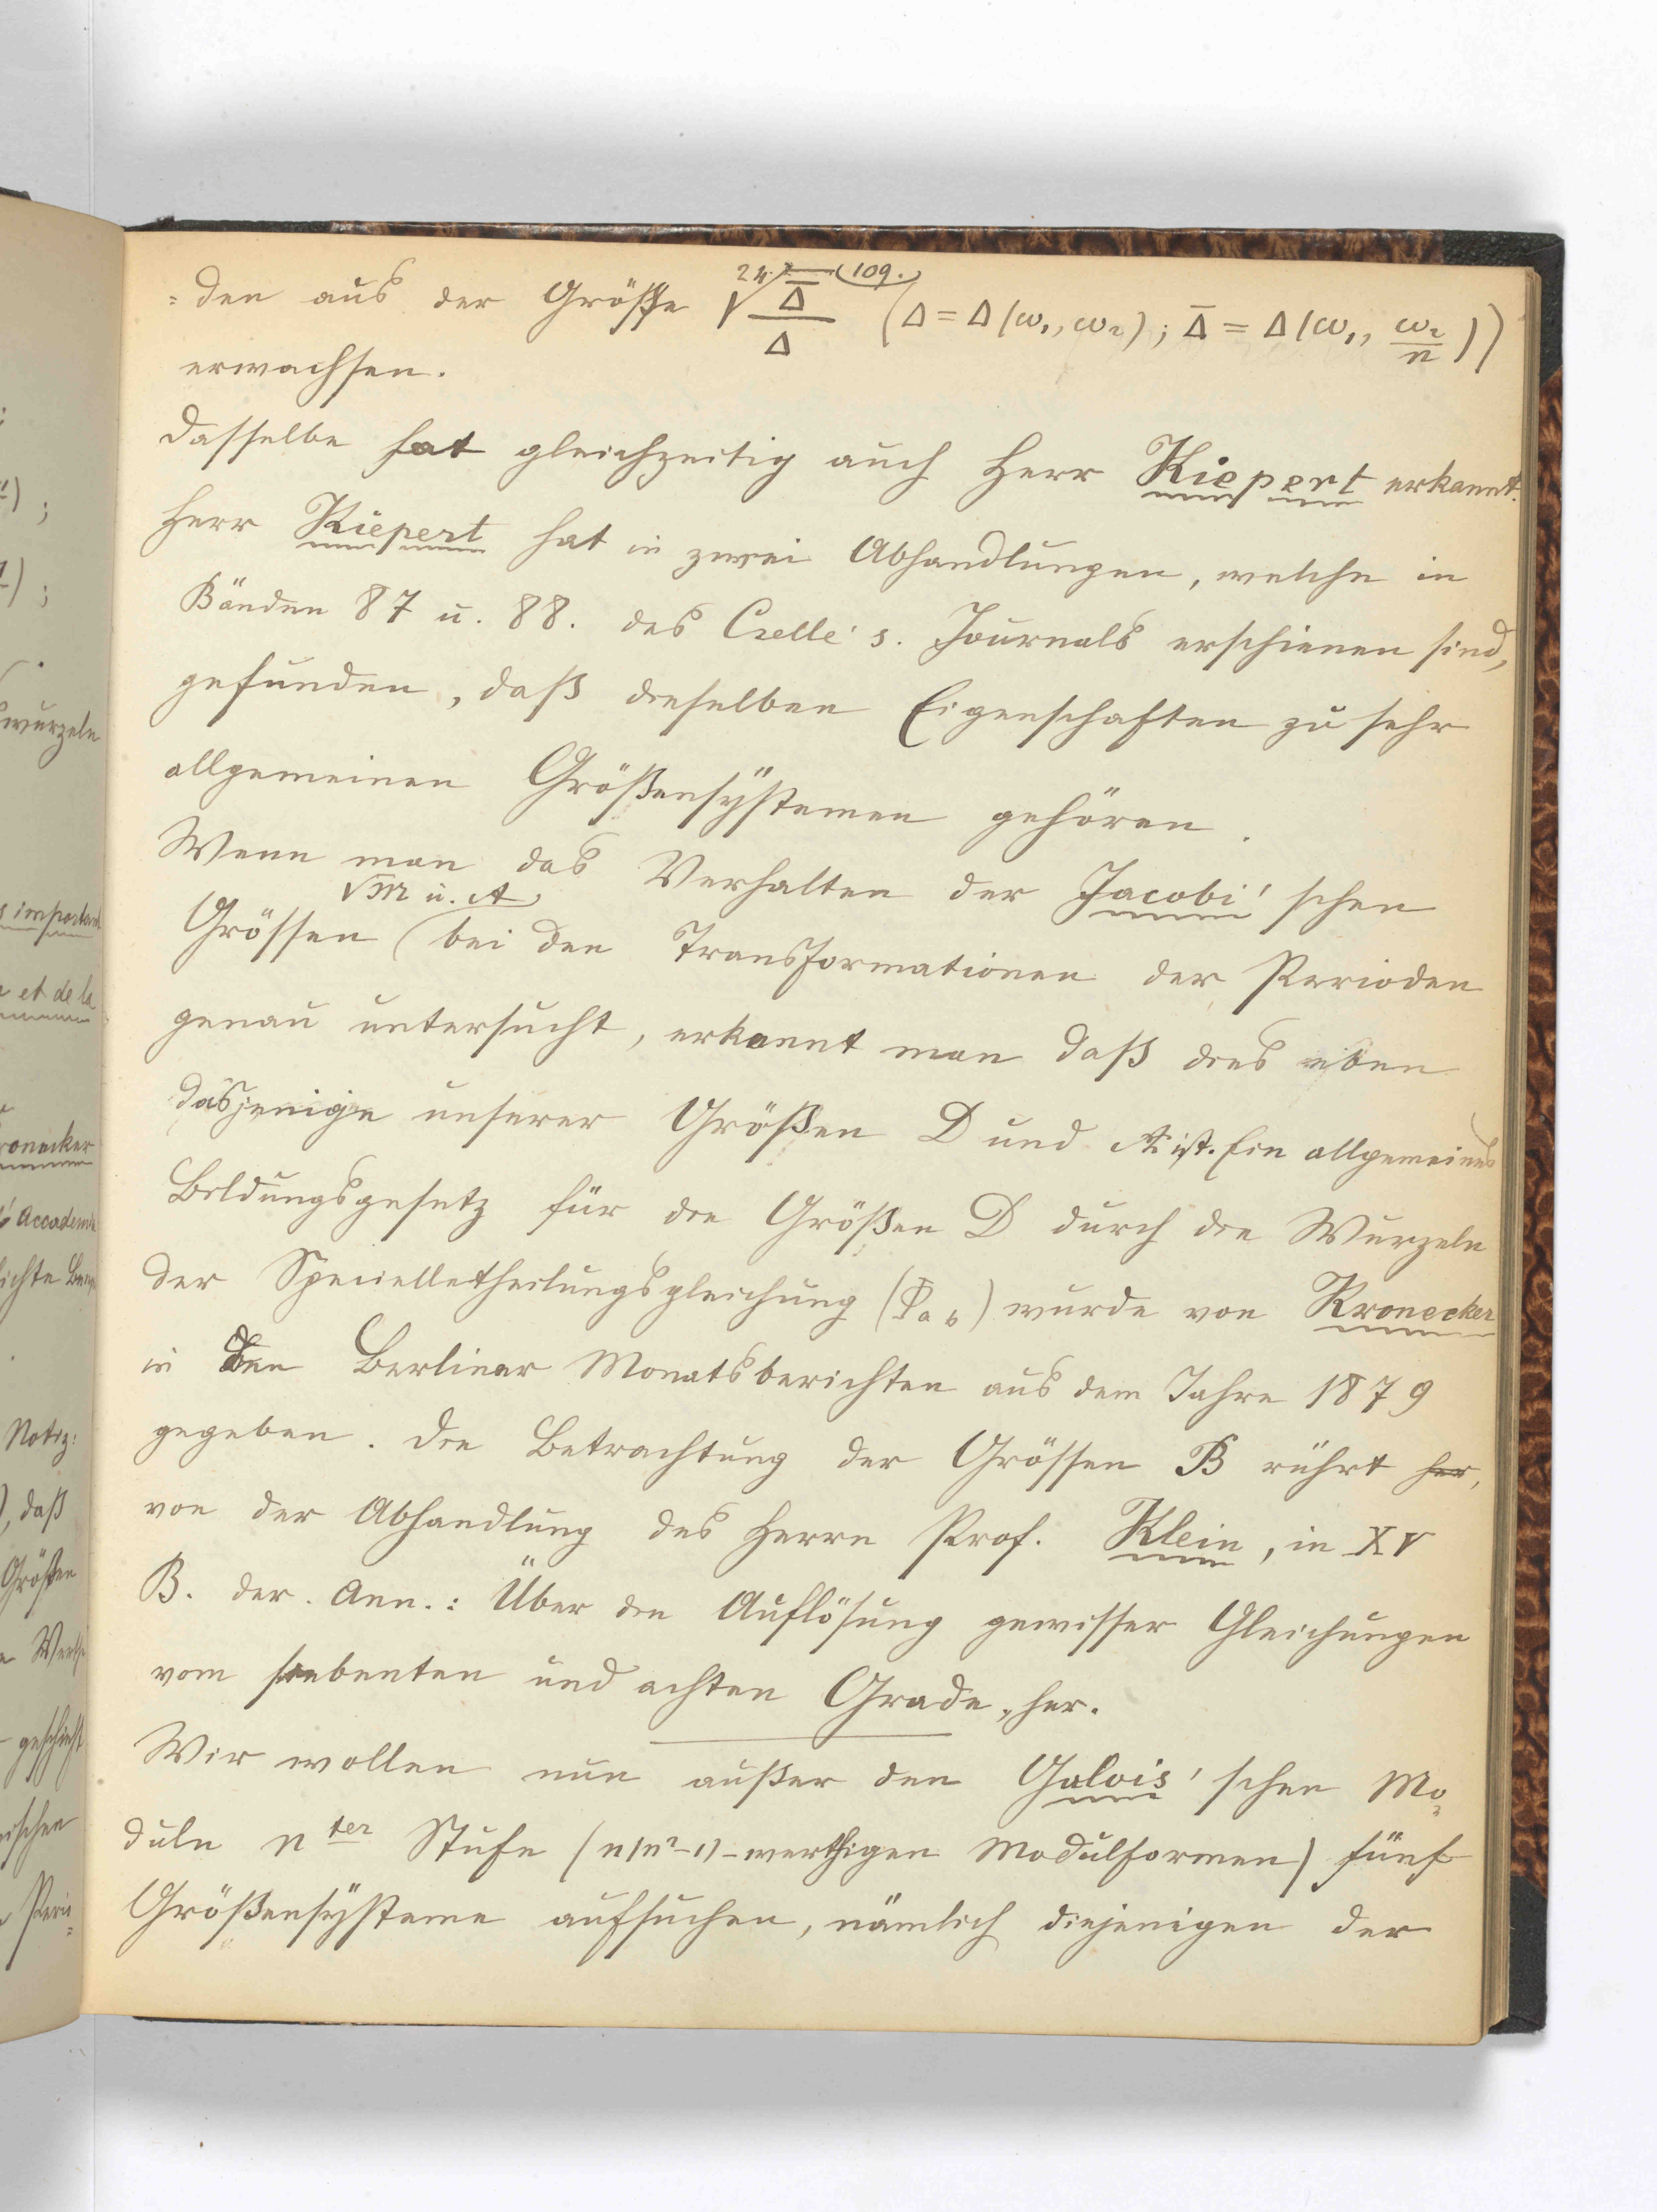 109.
=den aus der Größe \sqrt[24]{\frac{\overline{Δ}}{Δ}} (Δ = Δ(ω₁, ω₂); \overline{Δ} = Δ(ω₁, \frac{ω₂}{n}))
erwachsen.
Dasselbe hat gleichzeitig auch Herr Kiepert erkannt.
Herr Kiepert hat in zwei Abhandlungen, welche in
Bänden 87 u. 88. des Crelle's. Journals erschienen sind,
gefunden, daß dieselben Eigenschaften zu sehr
allgemeinen Größensystemen gehören.
Wenn man das Verhalten der Jacobi'schen
√M u. A
Grössen (bei den Transformationen der Perioden
genau untersucht, erkannt man daß dies eben
dasjenige unserer Größen D und A ist. Ein allgemeines
Bildungsgesetz für die Größen D durch die Wurzeln
der Speciellentheilungsgleichung (Φa b) wurde von Kronecker
in den Berliner Monatsberichten aus dem Jahre 1879
gegeben. Die Betrachtung der Grössen B rührt her,
von der Abhandlung des Herrn Prof. Klein, in XV
B. der. Ann.: Über die Auflösung gewisser Gleichungen
vom siebenten und achten Grade, her.
Wir wollen nun außer den Galois'schen Mo=
duln n ter Stufe (n(n²-1)-werthigen Modulformen) fünf
Größensysteme aufsuchen, nämlich diejenigen der
wurzeln
important
et de la
ronecker
Accademie
ichte
Notiz:
), daß
Größen
Werthe
geschieht
ischen